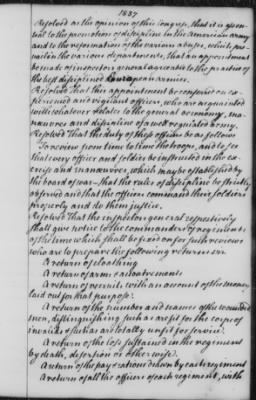 1837
Resolved as the opinion of this Congress, that it is essen-
tial to the promotion of discipline in the American army
and to the reformation of the various abuses, which pre-
vail in the various departments, that an appointment
be made of inspectors general agreeable to the practice of
the best disciplined European armies.
Resolved That this appointment be conferred on ex-
perienced and vigilant officers, who are acquainted
with whatever relates to the general oeconomy, ma-
nœuvres and discipline of a well regulated army.
Resolved That the duty of these officers be as follows
To review from time to time the troops, and to see
that every officer and soldier be instructed in the ex-
ercise and manœuvres, which may be established by
the board of war— that the rules of discipline be strictly
observed and that the officers command their soldiers
properly and do them justice.
Resolved That the inspectors general respectively
shall give notice to the commanders of regiments
of the time which shall be fixed on for such reviews
who are to prepare the following returns viz.
A return of cloathing
A return of arms & accoutrements
A return of recruits with an account of the money
laid out for that purpose.
A return of the number and names of the wounded
men, distinguishing such as are fit for the corps of
invalids & such as are totally unfit for service.
A return of the loss sustained in the regiment
by death, desertion or otherwise.
A return of the pay & rations drawn by each regiment
A return of all the officers of each regiment, with